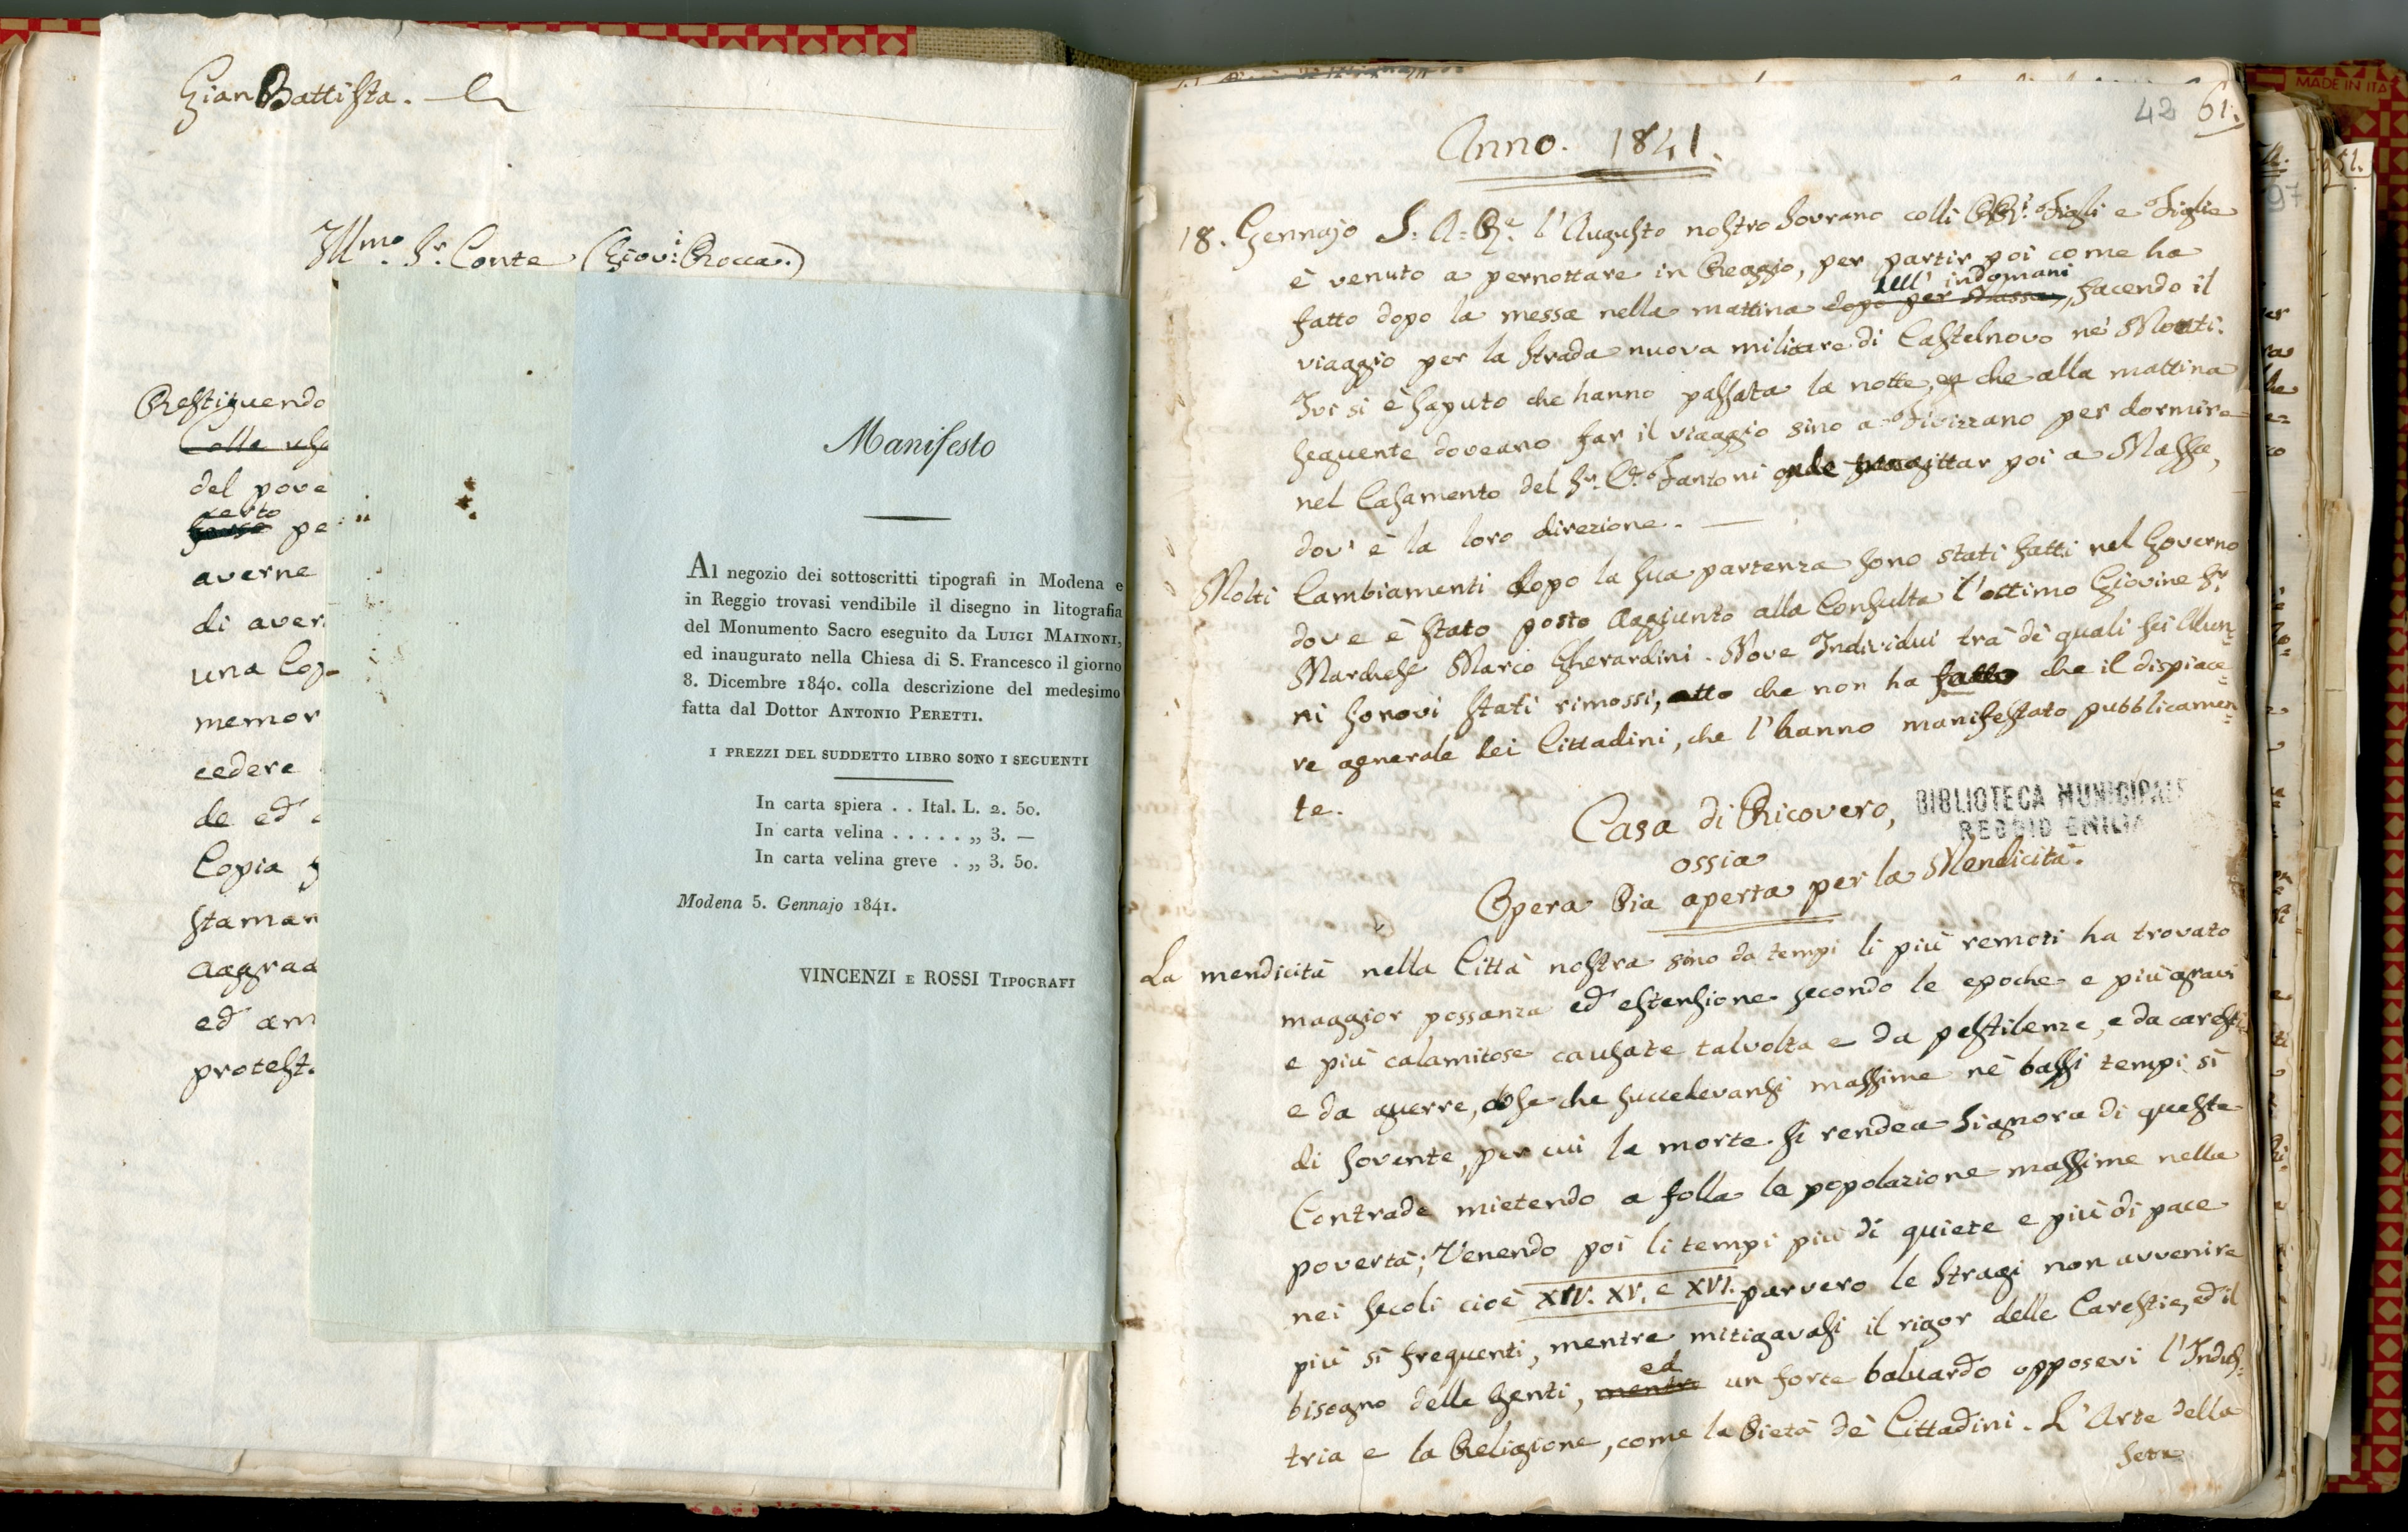 GianBattista.
Ill.mo Sr. Conte (Giov:i Rocca.)
Restiguendo
Colle
del pove
certo
pe
averne
di aver
una Cop
memor
cedere
de ed
Copia
staman
aggrad
ed am
protest.
Manifesto
Al negozio dei sottoscritti tipografi in Modena e
in Reggio trovasi vendibile il disegno in litografia
del Monumento Sacro eseguito da LUIGI MAINONI,
ed inaugurato nella Chiesa di S. Francesco il giorno
8. Dicembre 1840. colla descrizione del medesimo
fatta dal Dottor ANTONIO PERETTI.
I PREZZI DEL SUDDETTO LIBRO SONO I SEGUENTI
In carta spiera . . Ital. L. 2. 50.
In carta velina . . . . . „ 3. —
In carta velina greve . „ 3. 50.
Modena 5. Gennajo 1841.
VINCENZI E ROSSI TIPOGRAFI
42 61.
Anno. 1841.
18. Gennajo S. A. R.e l'Augusto nostro Sovrano colli RR.i Figli e Figlie
è venuto a pernottare in Reggio, per partir poi come ha
dell' indomani
fatto dopo la messa nella mattina dopo per Massa, facendo il
viaggio per la Strada nuova militare di Castelnovo nè Monti.
Ivi si è saputo che hanno passata la notte, e che alla mattina
seguente doveano far il viaggio sino a Fivizzano per dormire
nel Casamento del Sr. Fantoni onde poi a Massa,
dov' è la loro direzione.
Molti Cambiamenti dopo la sua partenza sono stati fatti nel Governo
dove è stato posto Aggiunto alla Consulta l'ottimo Giovine Sr.
Marchese Marco Gherardini. Nove Individui trà dè quali sei Alun=
ni sonovi stati rimossi, atto che non ha fatto che il dispiace=
re generale dei Cittadini, che l'hanno manifestato pubblicamen=
te.
Casa di Ricovero,
BIBLIOTECA MUNICIPALE
REGGIO EMILIA
ossia
Opera Pia aperta per la Mendicità.
La mendicità nella Città nostra sino da tempi li più remoti ha trovato
maggior possanza ed estensione secondo le epoche e più gravi
e più calamitose causate talvolta e da pestilenze, e da carestie
e da guerre, cose che succedevansi massime nè bassi tempi sì
di sovente, per cui la morte si rendea Signora di queste
Contrade mietendo a folla le popolazione massime nella
povertà; Venendo poi li tempi più di quiete e più di pace
nei secoli cioè XIV. XV. e XVI. parvero le Stragi non avvenire
più sì frequenti, mentre mitigavasi il rigor delle Carestie, ed il
ed
bisogno delle genti, mentre un forte baluardo opposevi l'Indus=
tria e la Religione, come la Pietà dè Cittadini. L'Arte della
Seta
MADE IN ITA
51.
97